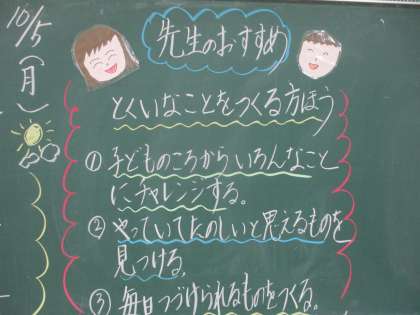 10/5(月)
先生のおすすめ
とくいなことをつくる方ほう
①子どものころからいろんなこと
にチャレンジする。
②やっていてたのしいと思えるものを
見つける。
③毎日つづけられるものをつくる。